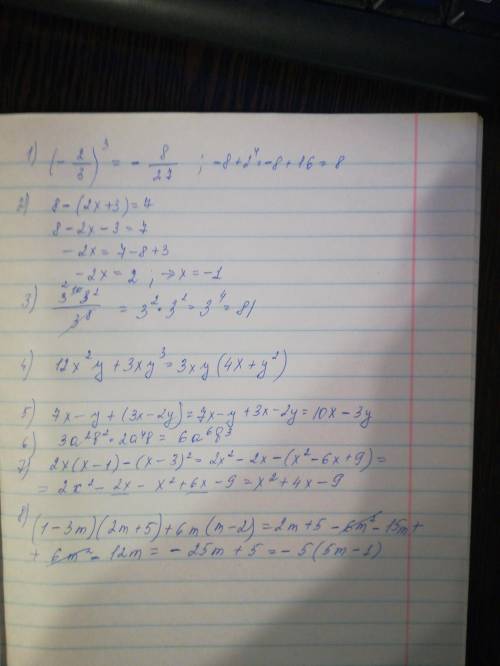 1) (-2/3)³ = - 8/27 ; -8+2⁴=-8+16=8
2) 8-(2x+3)=7
8-2x-3=7
-2x=7-8+3
-2x=2 ; → x=-1
3) 3¹⁰·3²/3⁸ = 3²·3²=3⁴=81
4) 12x²y+3xy³=3xy(4x+y²)
5) 7x-y+(3x-2y)=7x-y+3x-2y=10x-3y
6) 3a²b²·2a⁴b=6a⁶b³
7) 2x(x-1)-(x-3)²=2x²-2x-(x²-6x+9)=
=2x²-2x-x²+6x-9=x²+4x-9
8) (1-3m)(2m+5)+6m(m-2)=2m+5-6m²-15m+
+6m²-12m=-25m+5=-5(5m-1)